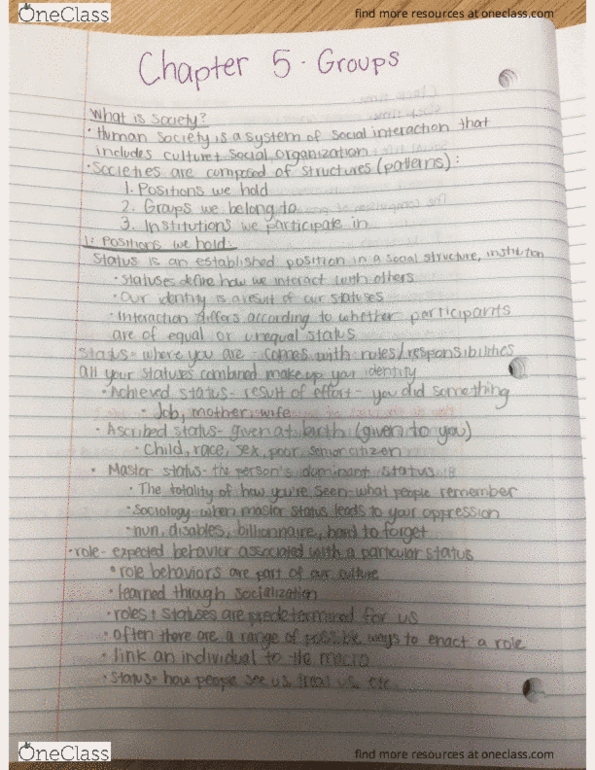 OneClass
find more resources at oneclass.com
Chapter 5 - Groups
What is society?
· Human society is a system of social interaction that
includes culture + social organization
· Societies are composed of structures (patterns):
1. Positions we hold
2. Groups we belong to
3. Institutions we participate in
1: Positions we hold:
Status is an established position in a social structure, institution
· Statuses define how we interact with others
· Our identity is a result of our statuses
· Interaction differs according to whether participants
are of equal or unequal status
Status - where you are - comes with rules/responsibilities
all your statuses combined make up your identity
· Achieved status - result of effort - you did something
· Job, mother, wife
· Ascribed status - given at birth (given to you)
· Child, race, sex, poor, senior citizen
· Master status - the person's dominant status
· The totality of how you're seen - what people remember
· Sociology - when master status leads to your oppression
· nun, disables, billionnaire, hard to forget
· role - expected behavior associated with a particular status
· role behaviors are part of our culture
· learned through socialization
· roles + statuses are predetermined for us
· often there are a range of possible ways to enact a role
· link an individual to the macro
· status = how people see us, treat us, etc.
OneClass
find more resources at oneclass.com